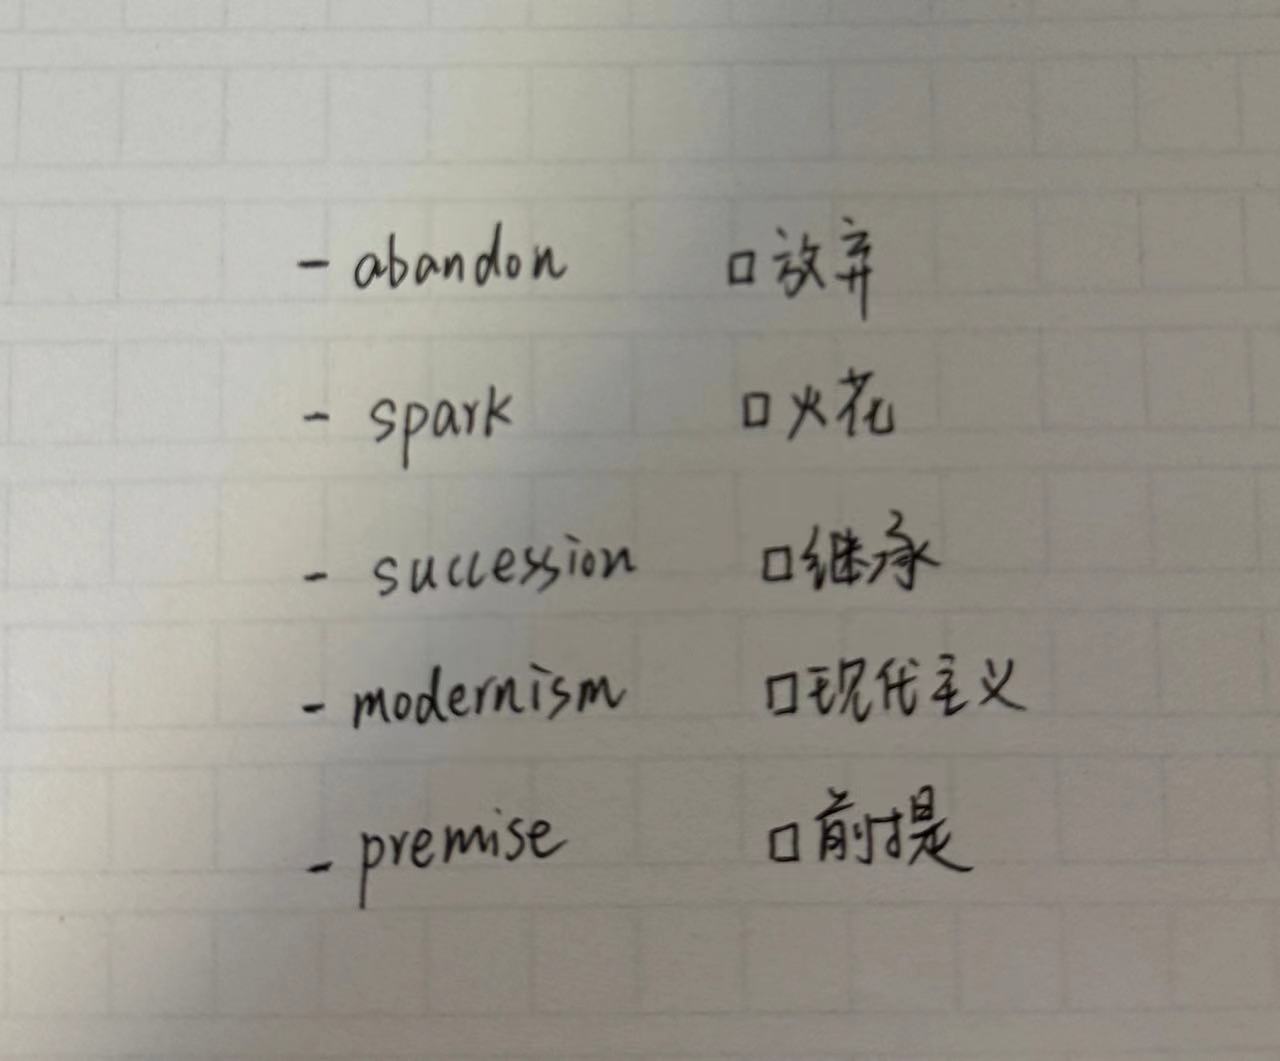 - abandon □放弃
- spark □火花
- succession □继承
- modernism □现代主义
- premise □前提